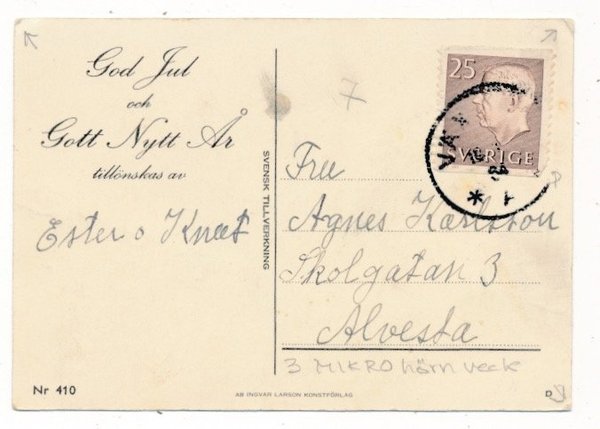 God Jul
och
Gott Nytt År
tillönskas av
Ester o Knut
SVENSK TILLVERKNING
7
25
SVERIGE
Fru
Agnes Karlsson
Skolgatan 3
Alvesta
3 MIKRO hörn veck
Nr 410
AB INGVAR LARSON KONSTFÖRLAG
D